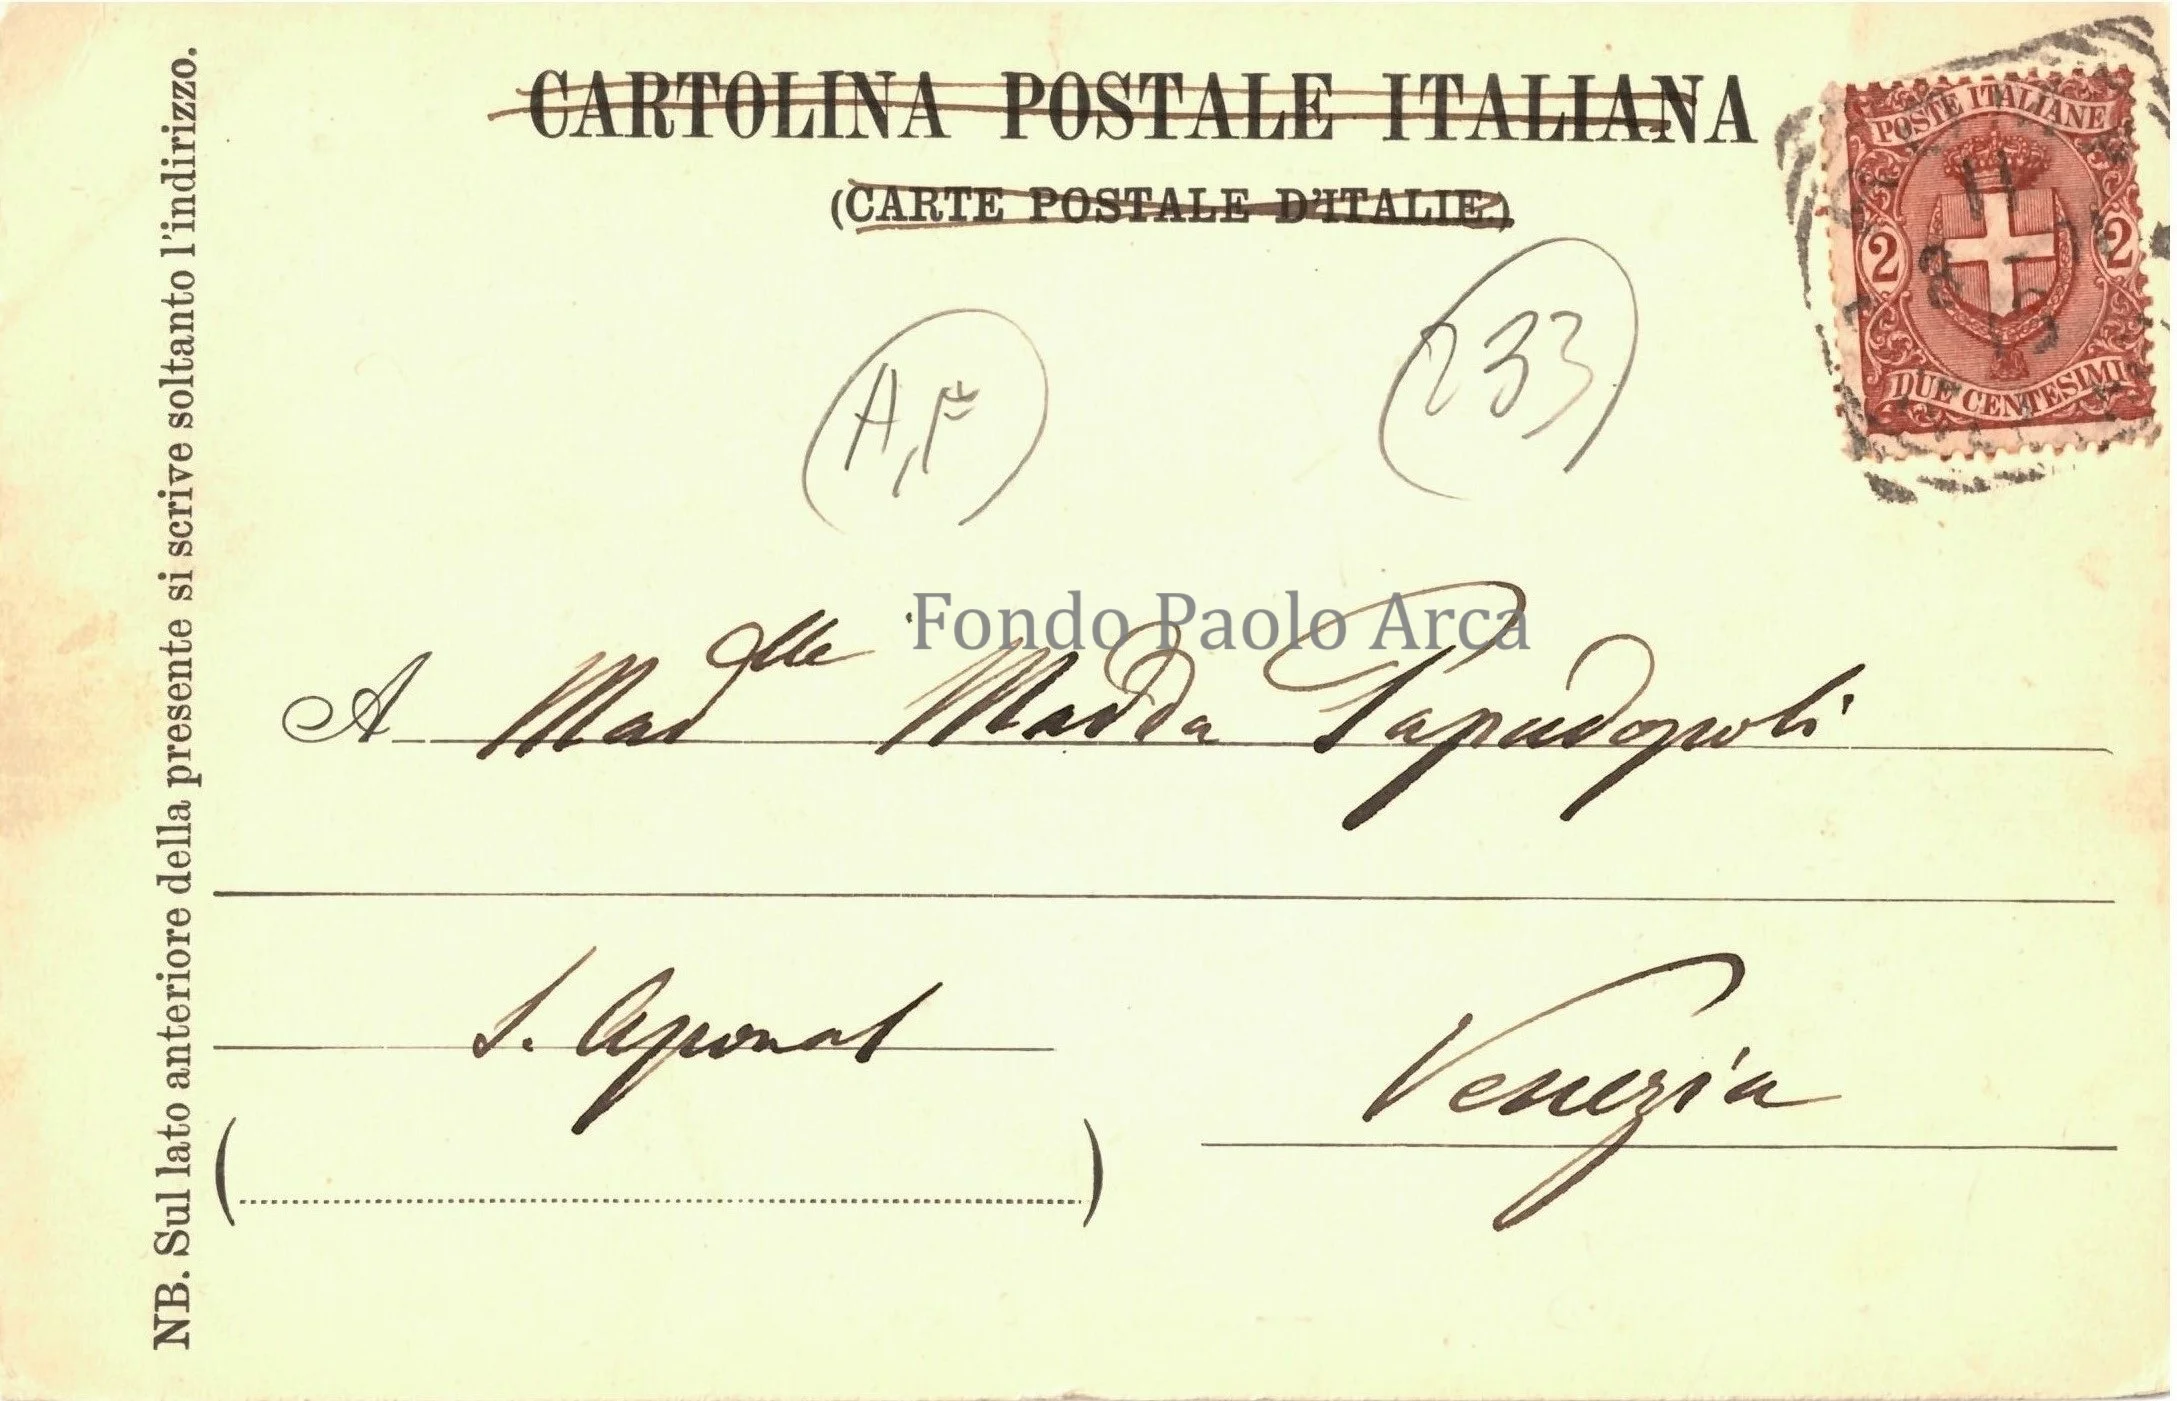 CARTOLINA POSTALE ITALIANA
(CARTE POSTALE D'ITALIE.)
POSTE ITALIANE
11
2 2
DUE CENTESIMI
233
Fondo Paolo Arca
A Madlle Madda Papadopoli
S. Aponal
Venezia
NB. Sul lato anteriore della presente si scrive soltanto l'indirizzo.